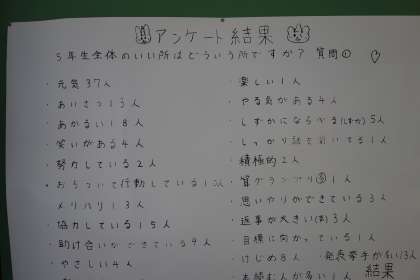 アンケート結果
5年生全体のいい所はどういう所ですか? 質問①
・元気37人
・あいさつ13人
・あかるい18人
・笑いがある4人
・努力している2人
・おちついて行動している1人
メリハリ13人
・協力している15人
・助け合いができている9人
・やさしい4人
・楽しい1人
・やる気がある4人
・しずかにならべる(しずか)5人
・しっかり話を聞いてる1人
・積極的2人
・算グランプリ 1人
・思いやりができている3人
・返事が大きい 3人
・目標に向かっている1人
・けじめ8人 ・発表挙手が 3人
結果